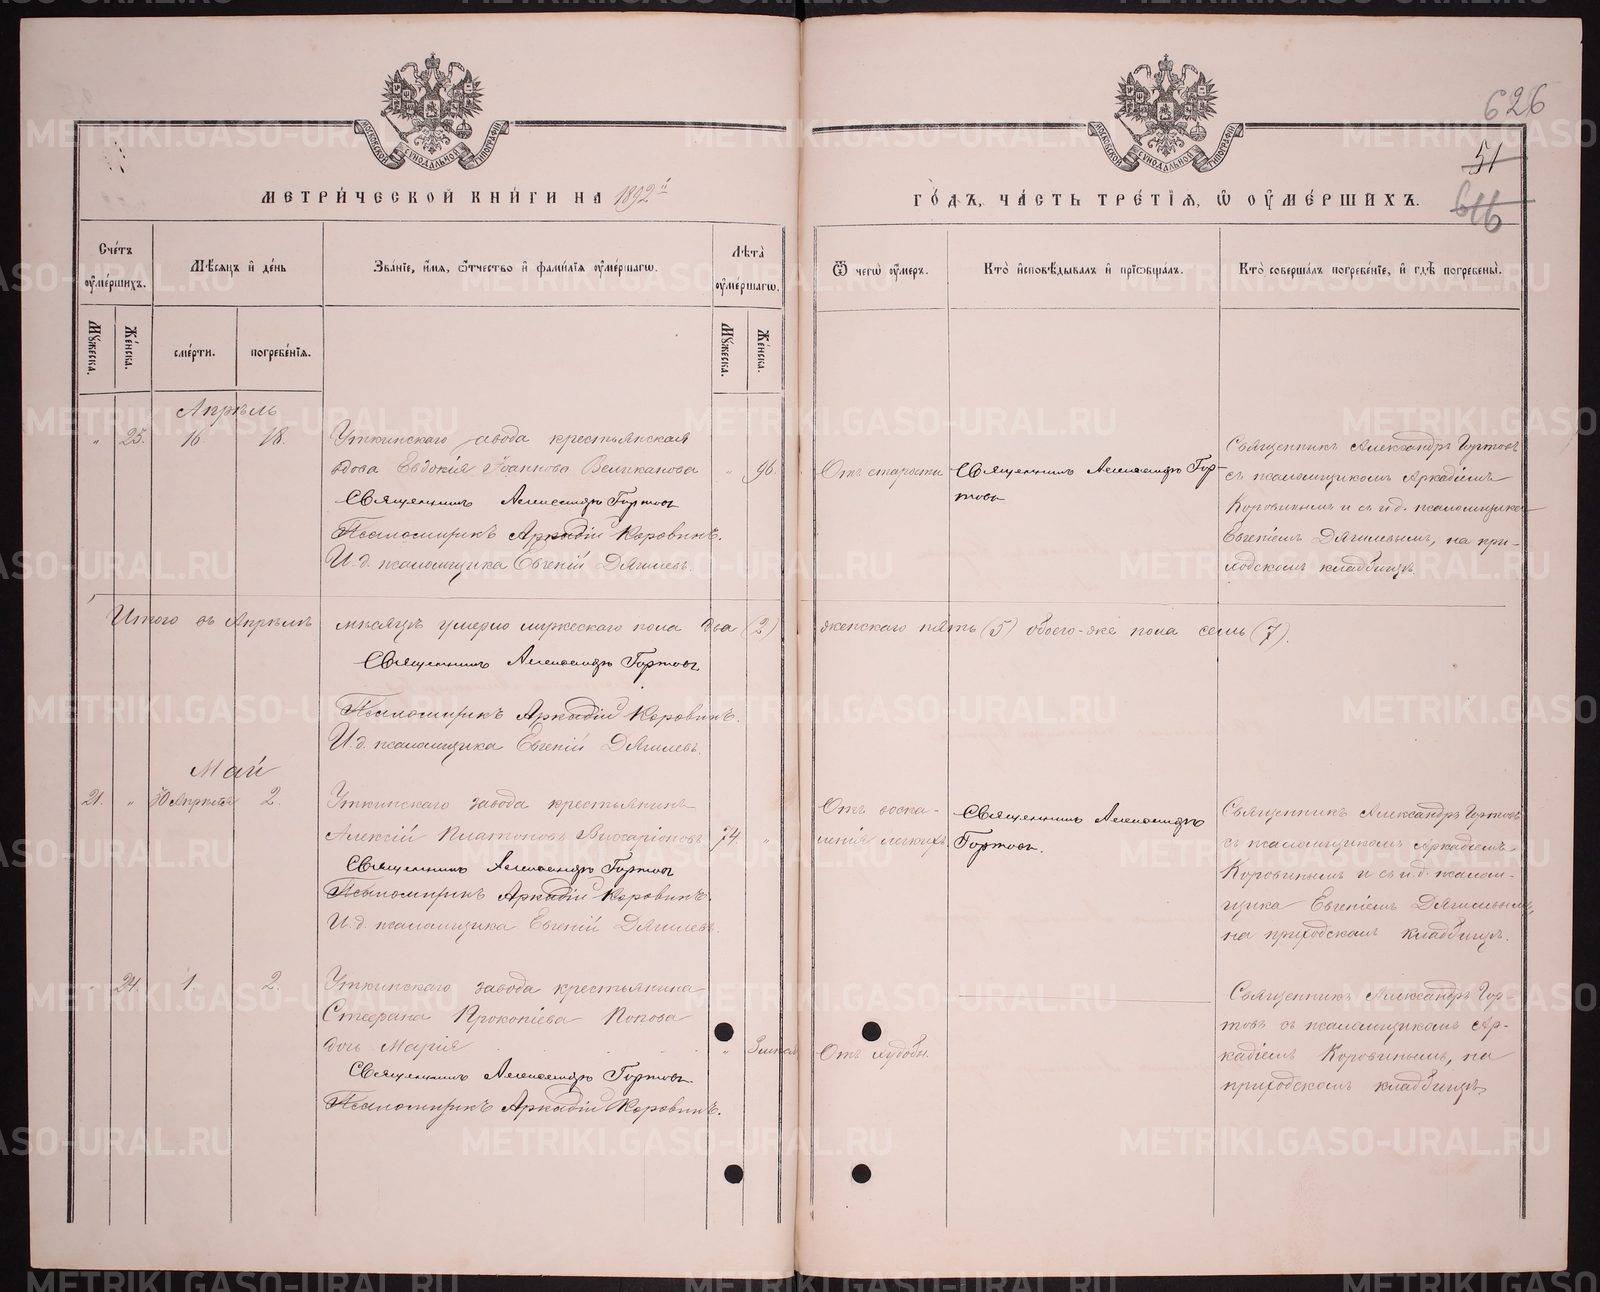 626
51
616
МЕТРИ́ЧЕСКОЙ КНИ́ГИ НА 1892й
ГО́ДЪ, ЧА́СТЬ ТРЕ́ТІѦ, Ѿ ОУ҆МЕ́РШИХЪ.
МОСКОВСКОЙ СѴНОДАЛЬНОЙ ТИПОГРАФІИ
МОСКОВСКОЙ СѴНОДАЛЬНОЙ ТИПОГРАФІИ
Сче́тъ оу҆ме́ршихъ.
Мѣ́сѧцъ и҆ де́нь
Зва́ніе, и҆́мѧ, ѻ҆́тчество и҆ фами́лїѧ оу҆ме́ршагѡ.
Лѣ̀та оу҆ме́ршагѡ.
Ѿ чегѡ̀ оу҆́меръ.
Кто̀ и҆сповѣ́дывалъ и҆ прїѡбща́лъ.
Кто̀ соверша́лъ погребе́нїе, и҆ гдѣ̀ погребены̀.
Мꙋ́жеска.
Же́нска.
сме́рти.
погребе́нїѧ.
Мꙋ́жеска.
Же́нска.
Апрѣль
" 23. 16. 18. Уткинскаго завода крестьянская
вдова Евдокія Іоаннова Великанова " 96.
Священникъ Александръ Гортовъ
Псаломщикъ Аркадій Коровинъ.
И. д. псаломщика Евгеній Дягилевъ.
Отъ старости
Священникъ Александръ Гор-
товъ
Священникъ Александръ Гортовъ
съ псаломщикомъ Аркадіемъ
Коровинымъ и съ и. д. псаломщика
Евгеніемъ Дягилевымъ, на при-
ходскомъ кладбищѣ.
Итого въ Апрѣлѣ мѣсяцѣ умерло мужескаго пола два (2) женскаго пять (5) обоего-же пола семь (7).
Священникъ Александръ Гортовъ
Псаломщикъ Аркадій Коровинъ.
И. д. псаломщика Евгеній Дягилевъ.
Май
21. " 30 Апрѣля 2. Уткинскаго завода крестьянинъ
Алексій Платоновъ Виссаріоновъ 74. "
Священникъ Александръ Гортовъ
Псаломщикъ Аркадій Коровинъ.
И. д. псаломщика Евгеній Дягилевъ.
Отъ воспа-
ленія легкихъ.
Священникъ Александръ
Гортовъ.
Священникъ Александръ Гортовъ
съ псаломщикомъ Аркадіемъ
Коровинымъ и съ и. д. псалом-
щика Евгеніемъ Дягилевымъ,
на приходскомъ кладбищѣ.
" 24. 1. 2. Уткинскаго завода крестьянина
Стефана Прокопіева Попова
дочь Марія "
Священникъ Александръ Гортовъ.
Псаломщикъ Аркадій Коровинъ.
Отъ худобы.
Священникъ Александръ Гор-
товъ съ псаломщикомъ Ар-
кадіемъ Коровинымъ, на
приходскомъ кладбищѣ.
METRIKI.GASO-URAL.RU